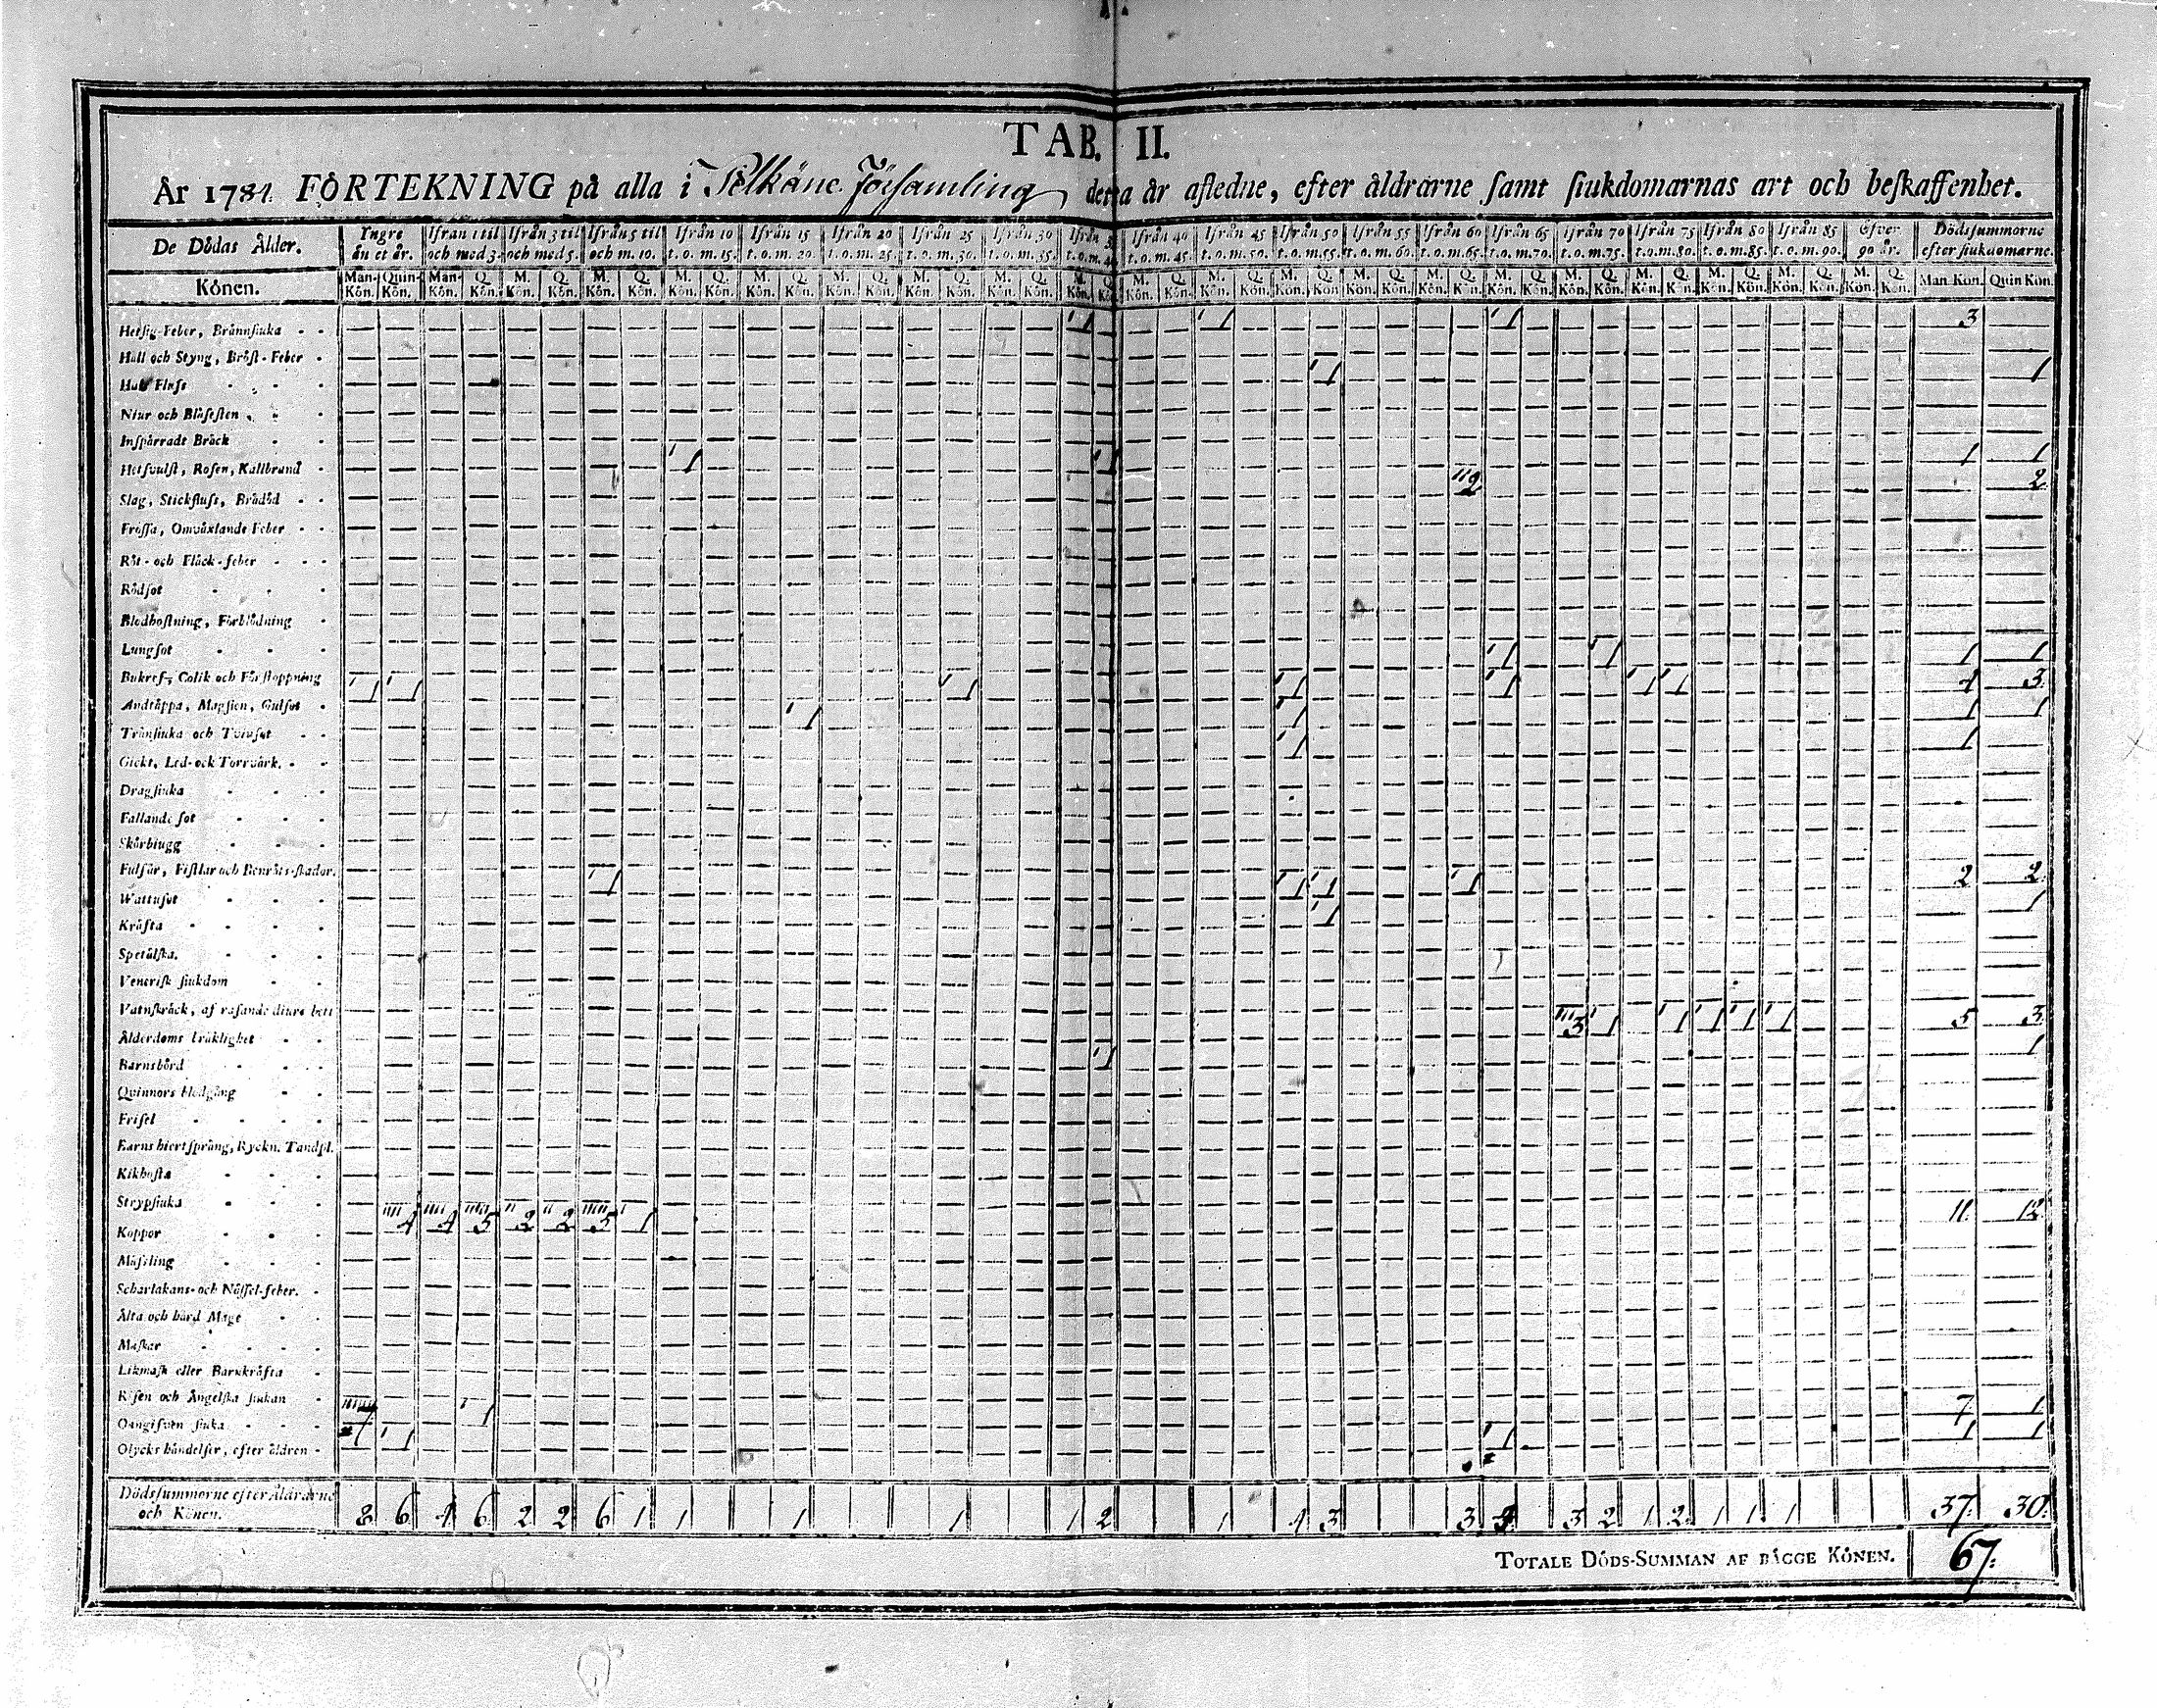 TAB. II.
År 1781. FÖRTEKNING på alla i Pelkäne Församling detta år afledne, efter åldrarne samt siukdomarnas art och beskaffenhet.
De Dödas Ålder. Yngre än et år. Ifrån 1 til och med 3. Ifrån 3 til och med 5. Ifrån 5 til och m. 10. Ifrån 10 t. o. m. 15. Ifrån 15 t. o. m. 20. Ifrån 20 t. o. m. 25. Ifrån 25 t. o. m. 30. Ifrån 30 t. o. m. 35. Ifrån t. o. m. Ifrån 40 t. o. m. 45. Ifrån 45 t. o. m. 50. Ifrån 50 t. o. m. 55. Ifrån 55 t. o. m. 60. Ifrån 60 t. o. m. 65. Ifrån 65 t. o. m. 70. Ifrån 70 t. o. m. 75. Ifrån 75 t. o. m. 80. Ifrån 80 t. o. m. 85. Ifrån 85 t. o. m. 90. Öfver 90 år. Dödssummorne efter siukdomarne.
Könen. Man-Kön. Quin-Kön. Man-Kön. Q. Kön. M. Kön. Q. Kön. M. Kön. Q. Kön. M. Kön. Q. Kön. M. Kön. Q. Kön. M. Kön. Q. Kön. M. Kön. Q. Kön. M. Kön. Q. Kön. M. Kön. Q. M. Kön. Q. Kön. M. Kön. Q. Kön. M. Kön. Q. Kön. M. Kön. Q. Kön. M. Kön. Q. Kön. M. Kön. Q. Kön. M. Kön. Q. Kön. M. Kön. Q. Kön. M. Kön. Q. Kön. M. Kön. Q. Kön. M. Kön. Q. Kön. Man Kön. Quin Kön.
Hetsig Feber, Brännsiuka 1 1 1 3
Håll och Styng, Bröst-Feber
Hals Fluss 1 1
Niur och Blåsesten
Inspärradt Bråck
Hetsvulst, Rosen, Kallbrand 1 1 1 1
Slag, Stickfluss, Brådöd 2 2
Frossa, Omväxlande Feber
Röt- och Fläck-feber
Rödsot
Blodhostning, Förblödning
Lungsot 1 1 1 1
Bukref, Colik och Förstoppning 1 1 1 1 1 1 1 4 3
Andtäppa, Magsien, Gulsot 1 1 1 1
Trånsiuka och Tvinsot 1 1
Gickt, Led- ock Torrvärk.
Dragsiuka
Fallande sot
Skörbiugg
Fulsår, Fistlar och Benröts-skador.
Wattusot 1 1 1 1 2 2
Kräfta 1 1
Spetälska.
Venerisk siukdom
Vatnskräck, af rasande diurs bett
Ålderdoms bräklighet 3 1 1 1 1 1 5 3
Barnsbörd 1 1
Quinnors blodgång
Frisel
Barns hiertsprång, Ryckn. Tandspl.
Kikhosta
Strypsiuka
Koppor 4 4 5 2 2 5 1 11. 12.
Mässling
Scharlakans- och Nässel-feber.
Älta och hård Mage
Maskar
Likmask eller Barnkräfta
Risen och Ängelska siukan
Oangifven siuka 7 1 7 1
Olycks händelser, efter äldren 1 1 1 1
Dödssummorne efter Åldrarne
och Könen. 8 6 4 6 2 2 6 1 1 1 1 1 2 1 4 3 3 3 2 1 2 1 1 1 37. 30.
TOTALE DÖDS-SUMMAN AF BÄGGE KÖNEN. 67.